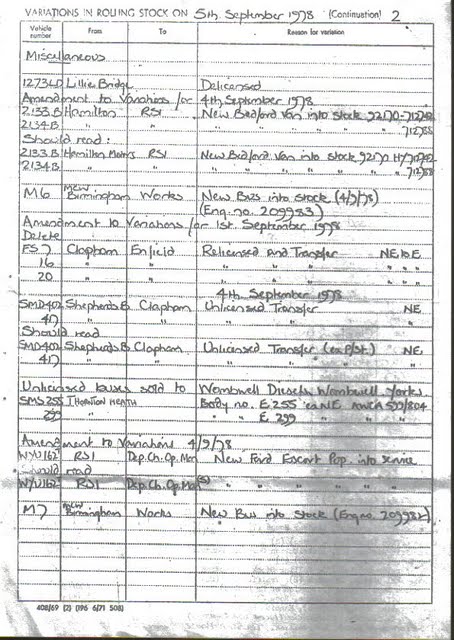 VARIATIONS IN ROLLING STOCK ON 5th. September 1978 (Continuation) 2
Vehicle number From To Reason for variation
Miscellaneous
1273LD Lillie Bridge Delicensed
Amendment to Variations for 4th September 1978
2133B Hamilton RSI New Bedford Van into stock
2134B " " " " " "
Should read:
2133B Hamilton Motors RSI New Bedford Van into stock
2134B " " " " " "
M6 MCW Birmingham Works New Bus into Stock (4/9/78)
(Eng. no. 209983)
Amendment to Variations for 1st. September 1978
Delete
FS7 Clapham Enfield Relicensed and Transfer NE to E
16 " " " " " " " "
20 " " " " " " " "
4th September 1978
SMD402 Shepherds B Clapham Unlicensed Transfer NE
417 " " " " "
Should read
Shepherds B Clapham Unlicensed Transfer (ex P/St.) NE
417 " " " " " "
Unlicensed buses sold to Wombwell Diesels, Wombwell Yorks.
SMS255 THORNTON HEATH Body no. E.255 ea NE
299 " " E 299 "
Amendment to Variations 4/9/78
RSI Dep. Ch. Op. Man New Ford Escort Pop. into service
Should read
RSI Dep. Ch. Op. Man(s) " " " " " "
M7 MCW Birmingham Works New Bus into Stock (Eng no. 209982)
408/69 (2) (196 6/71 508)